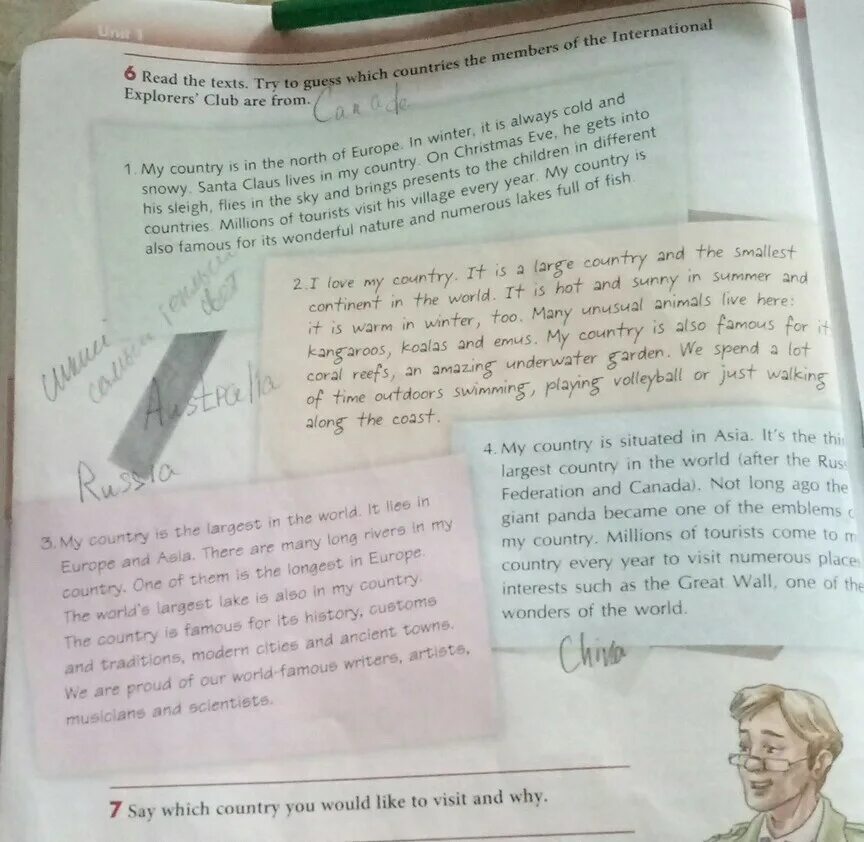 Unit 1
6 Read the texts. Try to guess which countries the members of the International
Explorers' Club are from.
Canada
1. My country is in the north of Europe. In winter, it is always cold and
snowy. Santa Claus lives in my country. On Christmas Eve, he gets into
his sleigh, flies in the sky and brings presents to the children in different
countries. Millions of tourists visit his village every year. My country is
also famous for its wonderful nature and numerous lakes full of fish.
2. I love my country. It is a large country and the smallest
continent in the world. It is hot and sunny in summer and
it is warm in winter, too. Many unusual animals live here:
kangaroos, koalas and emus. My country is also famous for it
coral reefs, an amazing underwater garden. We spend a lot
of time outdoors swimming, playing volleyball or just walking
along the coast.
Australia
Russia
3. My country is the largest in the world. It lies in
Europe and Asia. There are many long rivers in my
country. One of them is the longest in Europe.
The world's largest lake is also in my country.
The country is famous for its history, customs
and traditions, modern cities and ancient towns.
We are proud of our world-famous writers, artists,
musicians and scientists.
4. My country is situated in Asia. It's the thi
largest country in the world (after the Russ
Federation and Canada). Not long ago the
giant panda became one of the emblems o
my country. Millions of tourists come to m
country every year to visit numerous place
interests such as the Great Wall, one of the
wonders of the world.
China
7 Say which country you would like to visit and why.